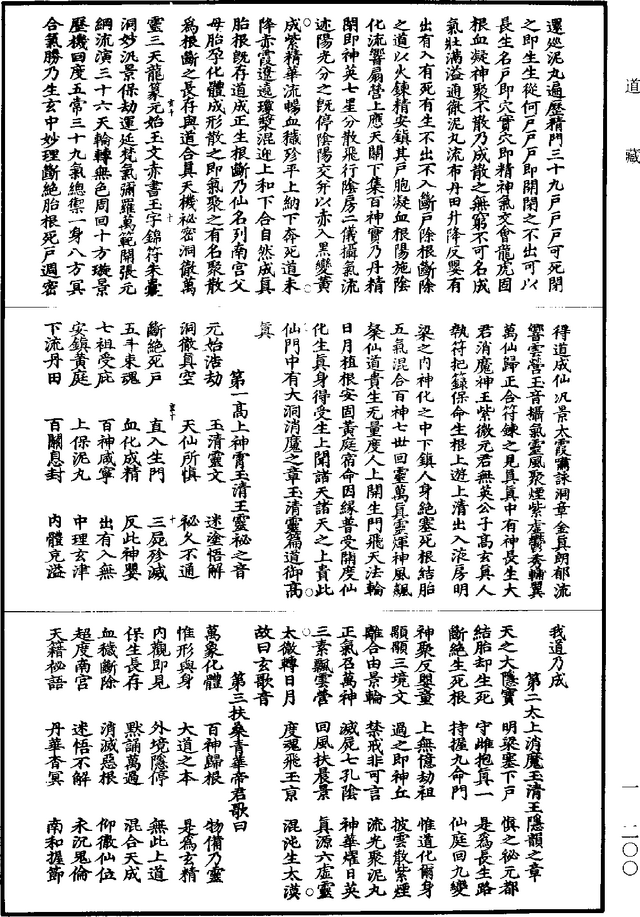 道藏
還廵泥丸遍歷精門三十九戸戸戸可死閉
之即生生從何戸戸戸即開閉之不出可以
長生名戸即穴實穴即精神氣交會龍虎固
根血凝神聚不散乃成散之無窮不可名成
氣壯滿溢通徹泥丸流布丹田升降反嬰有
出有入有死有生不出不入斷戸除根斷除
之道以火錬精安鎮其戸胞凝血根陽施陰
化流響扇營上應天關下集百神實乃丹精
閉即神英七星分散飛行陰房二儀攝氣流
述陽光分之旣停陰陽交并以赤入黑變黃
成紫精華流暢血穢殄平上納下奔死道未
降赤霞遼遠瓊漿混迎上和下合自然成真
胎根旣存道成正生根斷乃仙名列南宮父
母胎孕化體成形散之即氣聚之有名聚散
爲根斷之長存與道合真天機祕密洞徹萬
靈三天龍篆元始玉文赤書玉字錦符朱囊
洞妙汎景保劫運延梵氣彌羅萬範開張元
綱流演三十六天輪轉無色周回十方璇景
歷機回度五常三十九氣總禦一身八方冥
合氣勝乃生玄中妙理斷絶胎根死戸週密
得道成仙汎景太霞嘯詠洞章金真朗郁流
響雲營玉音攝氣靈風聚煙紫虚鬱秀輪翼
萬仙歸正合符錬之見真真中有神長生大
君消魔神王紫微元君無英公子髙玄真人
執符把籙保命生根上遊上清出入液房明
梁之内神化之中下鎮人身絶塞死根結胎
五氣混合百神七世回靈萬真靈煇神風飄
粲仙道貴生无量度人上開生門飛天法輪
日月植根安固黃庭宿命因緣普受開度仙
化生真身得受生上聞諸天諸天之上貴此
仙門中有大洞消魔之章玉清靈篇道御髙
真
第一髙上神霄玉清王靈祕之音
元始浩劫　玉清靈文　迷塗悟解
洞徹真空　天仙所愼　祕久不通
斷絶死戸　直入生門　三屍殄滅
五斗束魂　血化成精　反此神嬰
七祖受庇　百神咸寧　出有入無
安鎮黃庭　上保泥丸　中理玄津
下流丹田　百關息封　内體充溢
我道乃成
第二太上消魔玉清王隱韻之章
天之大隱寶　明梁塞下戸　愼之祕元都
結胎却生死　守雌抱真一　是爲長生路
斷絶生死根　持握九命門　仙庭回九變
神聚反嬰童　上無億劫祖　惟道化爾身
顯顯三境文　過之即神丘　披雲散紫煙
離合由景輪　禁戒非可言　流光聚泥丸
正氣召萬神　滅屍七孔陰　神華燿日英
三素飄雲營　回風扶晨景　真源六虛靈
太微轉日月　度魂飛玉京　混沌生太漠
故曰玄歌音
第三扶桑青華帝君歌曰
萬象化體　百神歸根　物備乃靈
惟形與身　大道之本　是爲玄精
内觀即見　外境隱停　無此上道
保生長存　黙誦萬過　混合天成
血穢斷除　消滅惡根　仰徹仙位
超度南宮　迷悟不解　未沉鬼倫
天籍祕語　丹華杳冥　南和握節
一　二〇〇